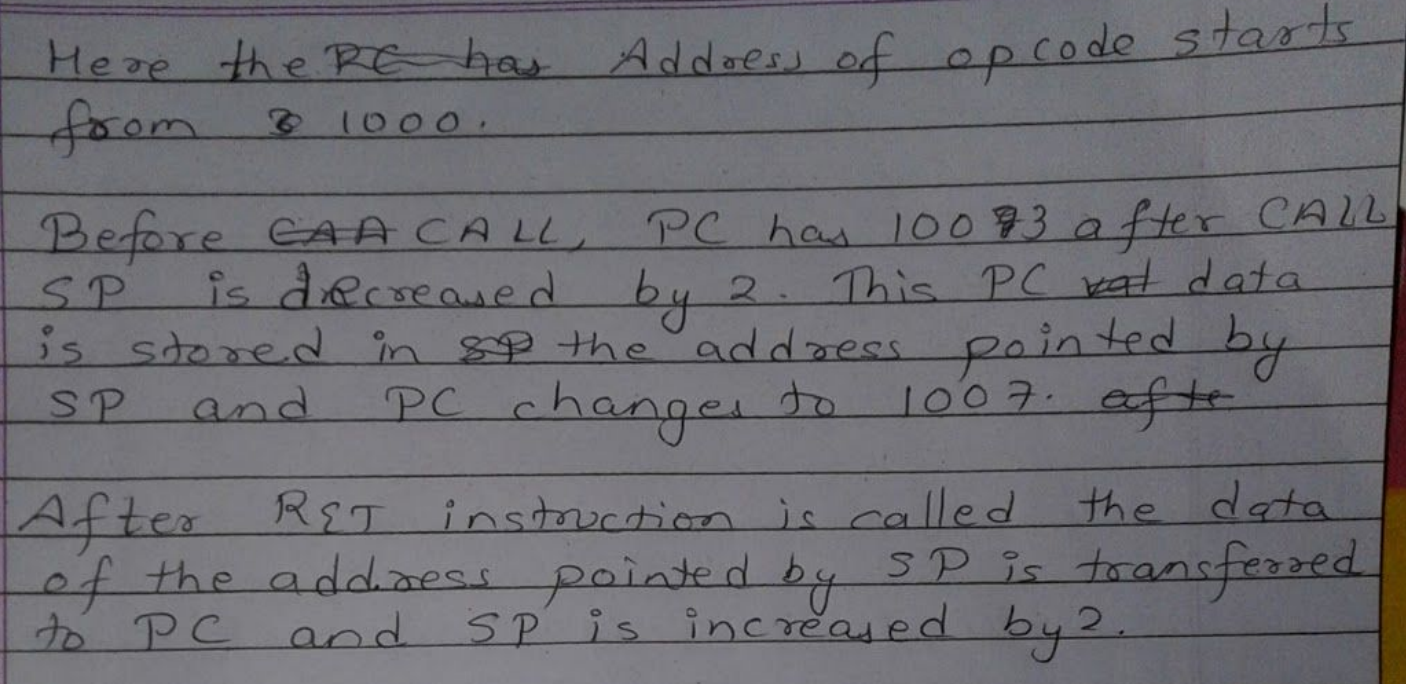 Here the Address of opcode starts
from 1000.
Before CALL, PC has 1003 after CALL
SP is decreased by 2. This PC data
is stored in the address pointed by
SP and PC changes to 1007.
After RET instruction is called the data
of the address pointed by SP is transferred
to PC and SP is increased by 2.